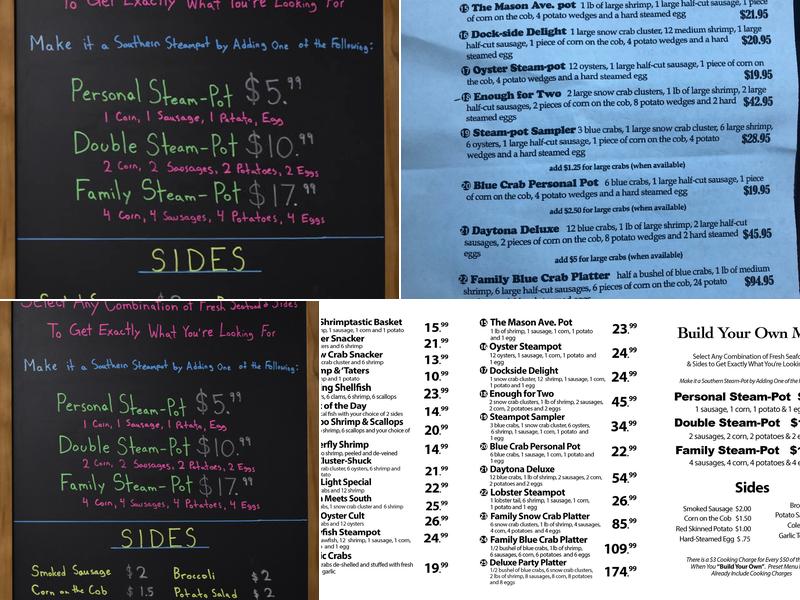 To Get Exactly What You're Looking For
Make it a Southern Steampot by Adding One of the Following:
Personal Steam-Pot $5.99
1 Corn, 1 Sausage, 1 Potato, Egg
Double Steam-Pot $10.99
2 Corn, 2 Sausages, 2 Potatoes, 2 Eggs
Family Steam-Pot $17.99
4 Corn, 4 Sausages, 4 Potatoes, 4 Eggs
SIDES
15 The Mason Ave. pot 1 lb of large shrimp, 1 large half-cut sausage, 1 piece
of corn on the cob, 4 potato wedges and a hard steamed egg $21.95
16 Dock-side Delight 1 large snow crab cluster, 12 medium shrimp, 1 large
half-cut sausage, 1 piece of corn on the cob, 4 potato wedges and a hard $20.95
steamed egg
17 Oyster Steam-pot 12 oysters, 1 large half-cut sausage, 1 piece of corn on
the cob, 4 potato wedges and a hard steamed egg $19.95
18 Enough for Two 2 large snow crab clusters, 1 lb of large shrimp, 2 large
half-cut sausages, 2 pieces of corn on the cob, 8 potato wedges and 2 hard $42.95
steamed eggs
19 Steam-pot Sampler 3 blue crabs, 1 large snow crab cluster, 6 large shrimp,
6 oysters, 1 large half-cut sausage, 1 piece of corn on the cob, 4 potato $28.95
wedges and a hard steamed egg
add $1.25 for large crabs (when available)
20 Blue Crab Personal Pot 6 blue crabs, 1 large half-cut sausage, 1 piece
of corn on the cob, 4 potato wedges and a hard steamed egg $19.95
add $2.50 for large crabs (when available)
21 Daytona Deluxe 12 blue crabs, 1 lb of large shrimp, 2 large half-cut
sausages, 2 pieces of corn on the cob, 8 potato wedges and 2 hard steamed $45.95
eggs
add $5 for large crabs (when available)
22 Family Blue Crab Platter half a bushel of blue crabs, 1 lb of medium
shrimp, 6 large half-cut sausages, 6 pieces of corn on the cob, 24 potato $94.95
Select Any Combination of Fresh Seafood & Sides
To Get Exactly What You're Looking For
Make it a Southern Steampot by Adding One of the Following:
Personal Steam-Pot $5.99
1 Corn, 1 Sausage, 1 Potato, Egg
Double Steam-Pot $10.99
2 Corn, 2 Sausages, 2 Potatoes, 2 Eggs
Family Steam-Pot $17.99
4 Corn, 4 Sausages, 4 Potatoes, 4 Eggs
SIDES
Smoked Sausage $2 Broccoli $2
Corn on the Cob $1.5 Potato Salad $2
Shrimptastic Basket 15.99
np, 1 sausage, 1 corn and 1 potato
er Snacker 21.99
and 6 shrimp
w Crab Snacker 13.99
crab cluster and 6 shrimp
mp & 'Taters 10.99
mp and 1 potato
ng Shellfish 23.99
s, 6 clams, 6 shrimp, 6 scallops
of the Day 14.99
al fish with your choice of 2 sides
oo Shrimp & Scallops 20.99
shrimp, 6 scallops and your choice of
erfly Shrimp 14.99
o shrimp, peeled and de-veined
Cluster-Shuck 21.99
rab cluster, 6 oysters, 6 shrimp and
tato
Light Special 22.99
abs and 12 shrimp
Meets South 25.99
bs, 1 snow crab cluster and 6 shrimp
Oyster Cult 26.99
abs and 12 oysters
fish Steampot 24.99
awfish, 12 shrimp, 1 sausage, 1 corn,
and 1 egg
ic Crabs 19.99
rabs de-shelled and stuffed with fresh
garlic
15 The Mason Ave. Pot 23.99
1 lb of shrimp, 1 sausage, 1 corn, 1 potato
and 1 egg
16 Oyster Steampot 24.99
12 oysters, 1 sausage, 1 corn, 1 potato and
1 egg
17 Dockside Delight 24.99
1 snow crab cluster, 12 shrimp, 1 sausage, 1 corn,
1 potato and 1 egg
18 Enough for Two 45.99
2 snow crab clusters, 1 lb of shrimp, 2 sausages,
2 corn, 2 potatoes and 2 eggs
19 Steampot Sampler 34.99
3 blue crabs, 1 snow crab cluster, 6 oysters,
6 shrimp, 1 sausage, 1 corn, 1 potato and
1 egg
20 Blue Crab Personal Pot 22.99
6 blue crabs, 1 sausage, 1 corn, 1 potato and
1 egg
21 Daytona Deluxe 54.99
12 blue crabs, 1 lb of shrimp, 2 sausages, 2 corn,
2 potatoes and 2 eggs
22 Lobster Steampot 26.99
1 lobster tail, 6 shrimp, 1 sausage, 1 corn,
1 potato and 1 egg
23 Family Snow Crab Platter 85.99
6 snow crab clusters, 1 lb of shrimp, 4 sausages,
4 corn, 4 potatoes and 4 eggs
24 Family Blue Crab Platter 109.99
1/2 bushel of blue crabs, 1 lb of shrimp,
6 sausages, 6 corn, 6 potatoes and 6 eggs
25 Deluxe Party Platter 174.99
1/2 bushel of blue crabs, 6 snow crab clusters,
2 lbs of shrimp, 8 sausages, 8 corn, 8 potatoes
and 8 eggs
Build Your Own M
Select Any Combination of Fresh Seafo
& Sides to Get Exactly What You're Lookin
Make it a Southern Steampot by Adding One of the
Personal Steam-Pot $
1 sausage, 1 corn, 1 potato & 1 eg
Double Steam-Pot $1
2 sausages, 2 corn, 2 potatoes & 2 e
Family Steam-Pot $1
4 sausages, 4 corn, 4 potatoes & 4 e
Sides
Smoked Sausage $2.00 Bro
Corn on the Cob $1.50 Potato Sa
Red Skinned Potato $1.00 Cole
Hard-Steamed Egg $.75 Garlic T
There is a $3 Cooking Charge for Every $50 of th
When You "Build Your Own". Preset Menu I
Already Include Cooking Charges